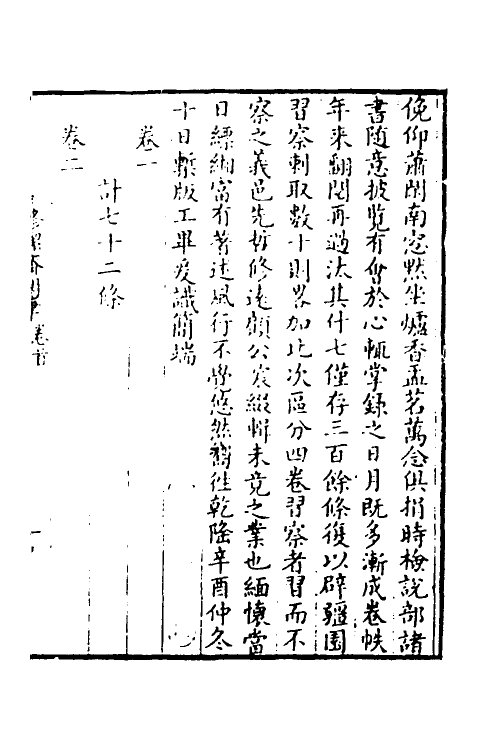 俛仰蕭閒南窓黙坐爐香盂茗萬念俱捐時檢說部諸
書隨意披覧有會於心輒掌錄之日月既多漸成卷帙
年来翻閱再過汰其什七僅存三百餘條復以辟疆園
習察剌取數十則畧加比次區分四卷習察者習而不
察之義邑先哲修遠顧公裒綴輯未竟之業也緬懷當
日縹緗富有著述風行不覺悠然嚮徃乾隆辛酉仲冬
十日槧版工畢爰識簡端
卷一
計七十二條
卷二
卷首
一